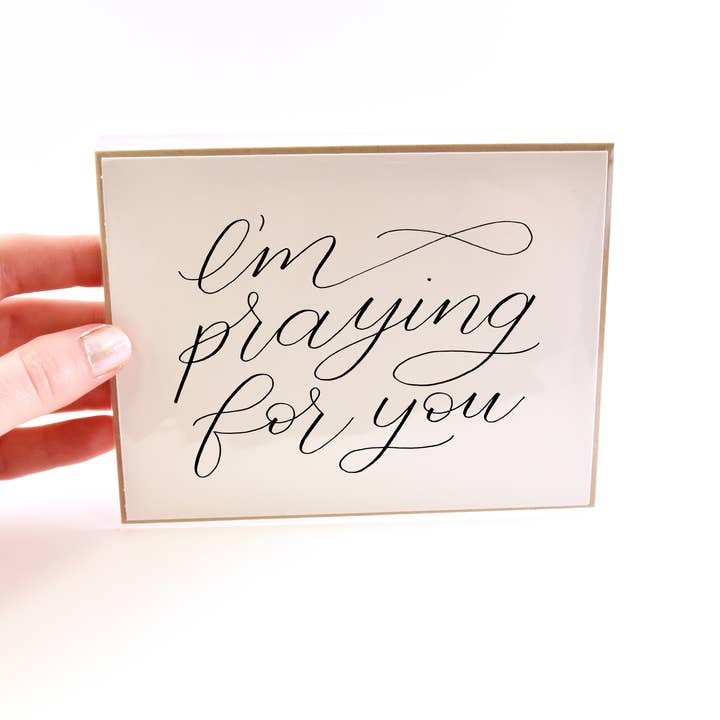 I'm
praying
for you